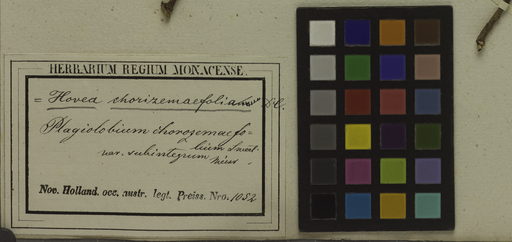 HERBARIUM REGIUM MONACENSE.
= Hovea chorizemaefolia DC.
Plagiolobium chorozemaefo=
lium Sweet.
var. subintegrum Meisn.
Nov. Holland. occ. austr. legt. Preiss. Nro. 1052